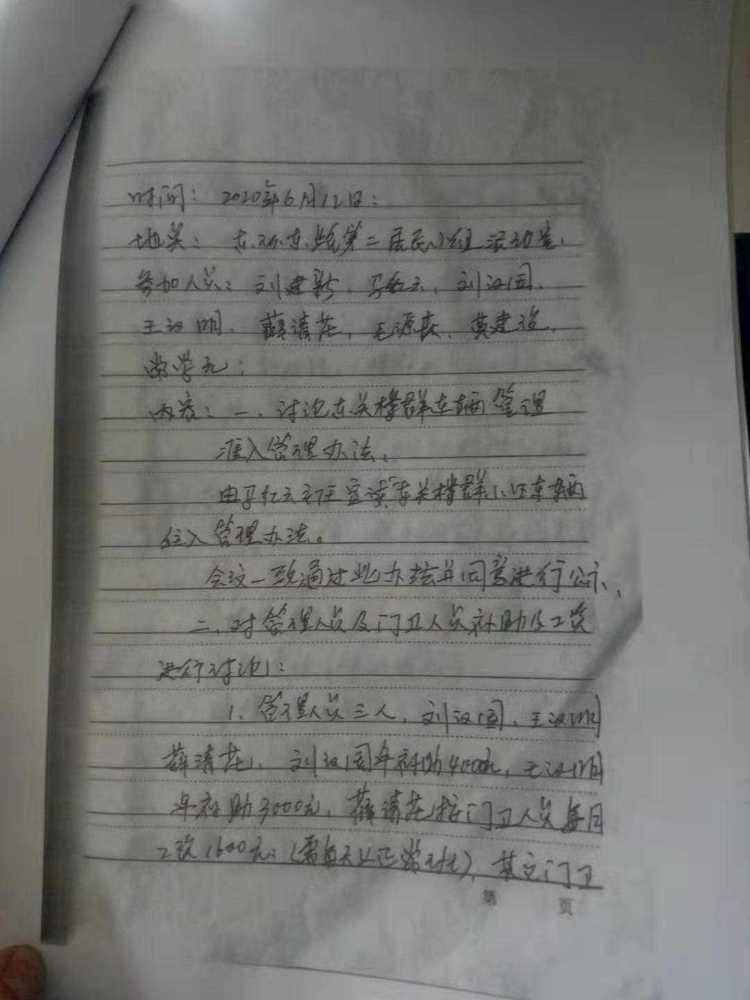 时间：2020年6月12日：
地点：东环东苑第二居民小组活动室，
参加人员：刘建新、马红云、刘汉国、
王汉明、薛清莲，毛源森、黄建设、
常学礼：
内容：一、讨论东关楼群车辆管理
准入管理办法。
由马红云主任宣读“东关楼群小区车辆
住入管理办法。
会议一致通过此办法并同意进行公示、
二、对管理人员及门卫人员补助及工资
进行讨论：
1、管理人员三人，刘汉国、王汉明
薛清莲，刘汉国年补助4000元，王汉明
年补助3000元，薛清莲按门卫人员每月
工资1600元：(需每天上正常班)，其它门卫
第 页